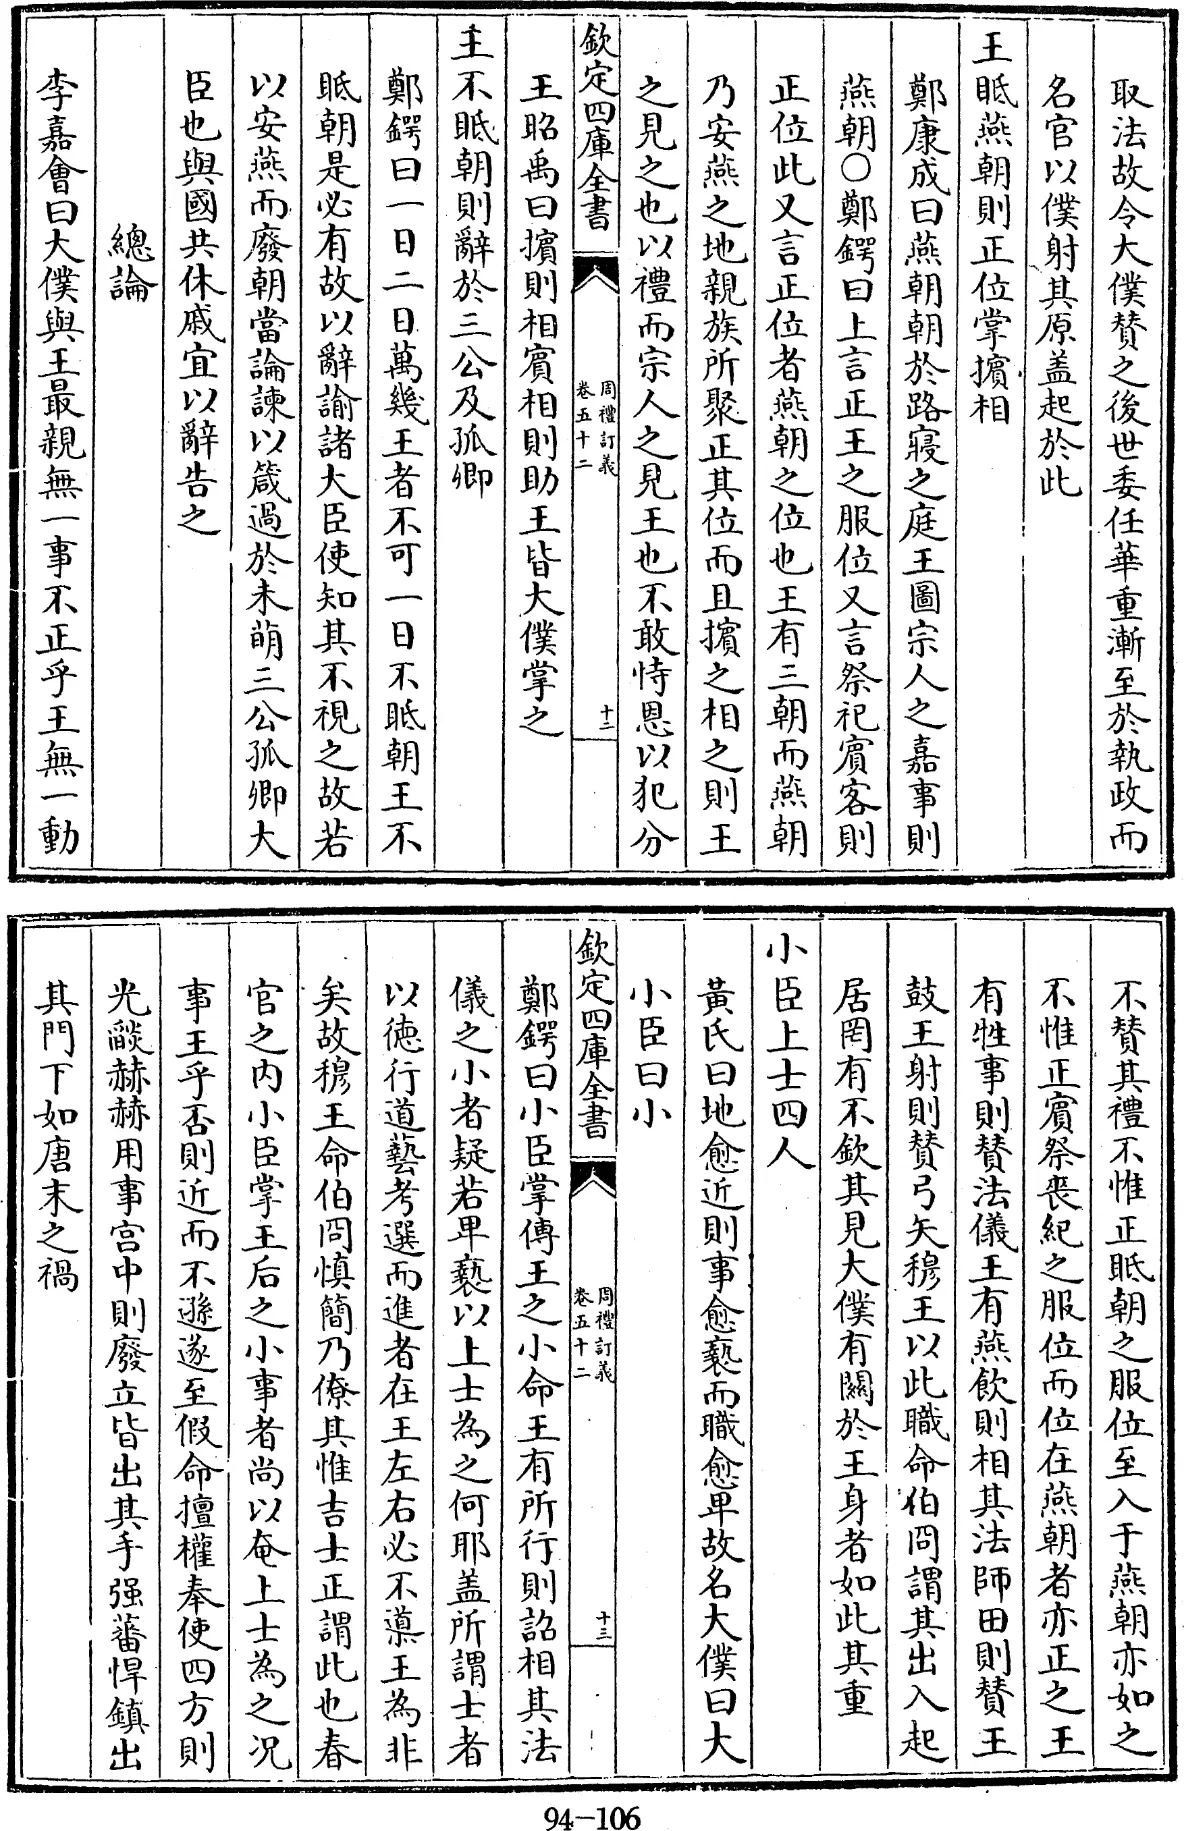 取法故令大僕賛之後世委任華重漸至於執政而
名官以僕射其原盖起於此
王眡燕朝則正位掌擯相
鄭康成曰燕朝朝於路寢之庭王圖宗人之嘉事則
燕朝○鄭鍔曰上言正王之服位又言祭祀賓客則
正位此又言正位者燕朝之位也王有三朝而燕朝
乃安燕之地親族所聚正其位而且擯之相之則王
之見之也以禮而宗人之見王也不敢恃恩以犯分
欽定四庫全書
周禮訂義
卷五十二
十二
王昭禹曰擯則相賓相則助王皆大僕掌之
王不眡朝則辭於三公及孤卿
鄭鍔曰一日二日萬幾王者不可一日不眡朝王不
眡朝是必有故以辭諭諸大臣使知其不視之故若
以安燕而廢朝當論諫以箴過於未萌三公孤卿大
臣也與國共休戚宜以辭告之
總論
李嘉會曰大僕與王最親無一事不正乎王無一動
不賛其禮不惟正眡朝之服位至入于燕朝亦如之
不惟正賓祭喪紀之服位而位在燕朝者亦正之王
有牲事則賛法儀王有燕飲則相其法師田則賛王
鼓王射則賛弓矢穆王以此職命伯冏謂其出入起
居罔有不欽其見大僕有關於王身者如此其重
小臣上士四人
黃氏曰地愈近則事愈褻而職愈卑故名大僕曰大
小臣曰小
欽定四庫全書
周禮訂義
卷五十二
十三
鄭鍔曰小臣掌傳王之小命王有所行則詔相其法
儀之小者疑若卑褻以上士為之何耶盖所謂士者
以德行道藝考選而進者在王左右必不導王為非
矣故穆王命伯冏慎簡乃僚其惟吉士正謂此也春
官之内小臣掌王后之小事者尚以奄上士為之况
事王乎否則近而不遜遂至假命擅權奉使四方則
光燄赫赫用事宫中則廢立皆出其手强藩悍鎮出
其門下如唐末之禍
94-106